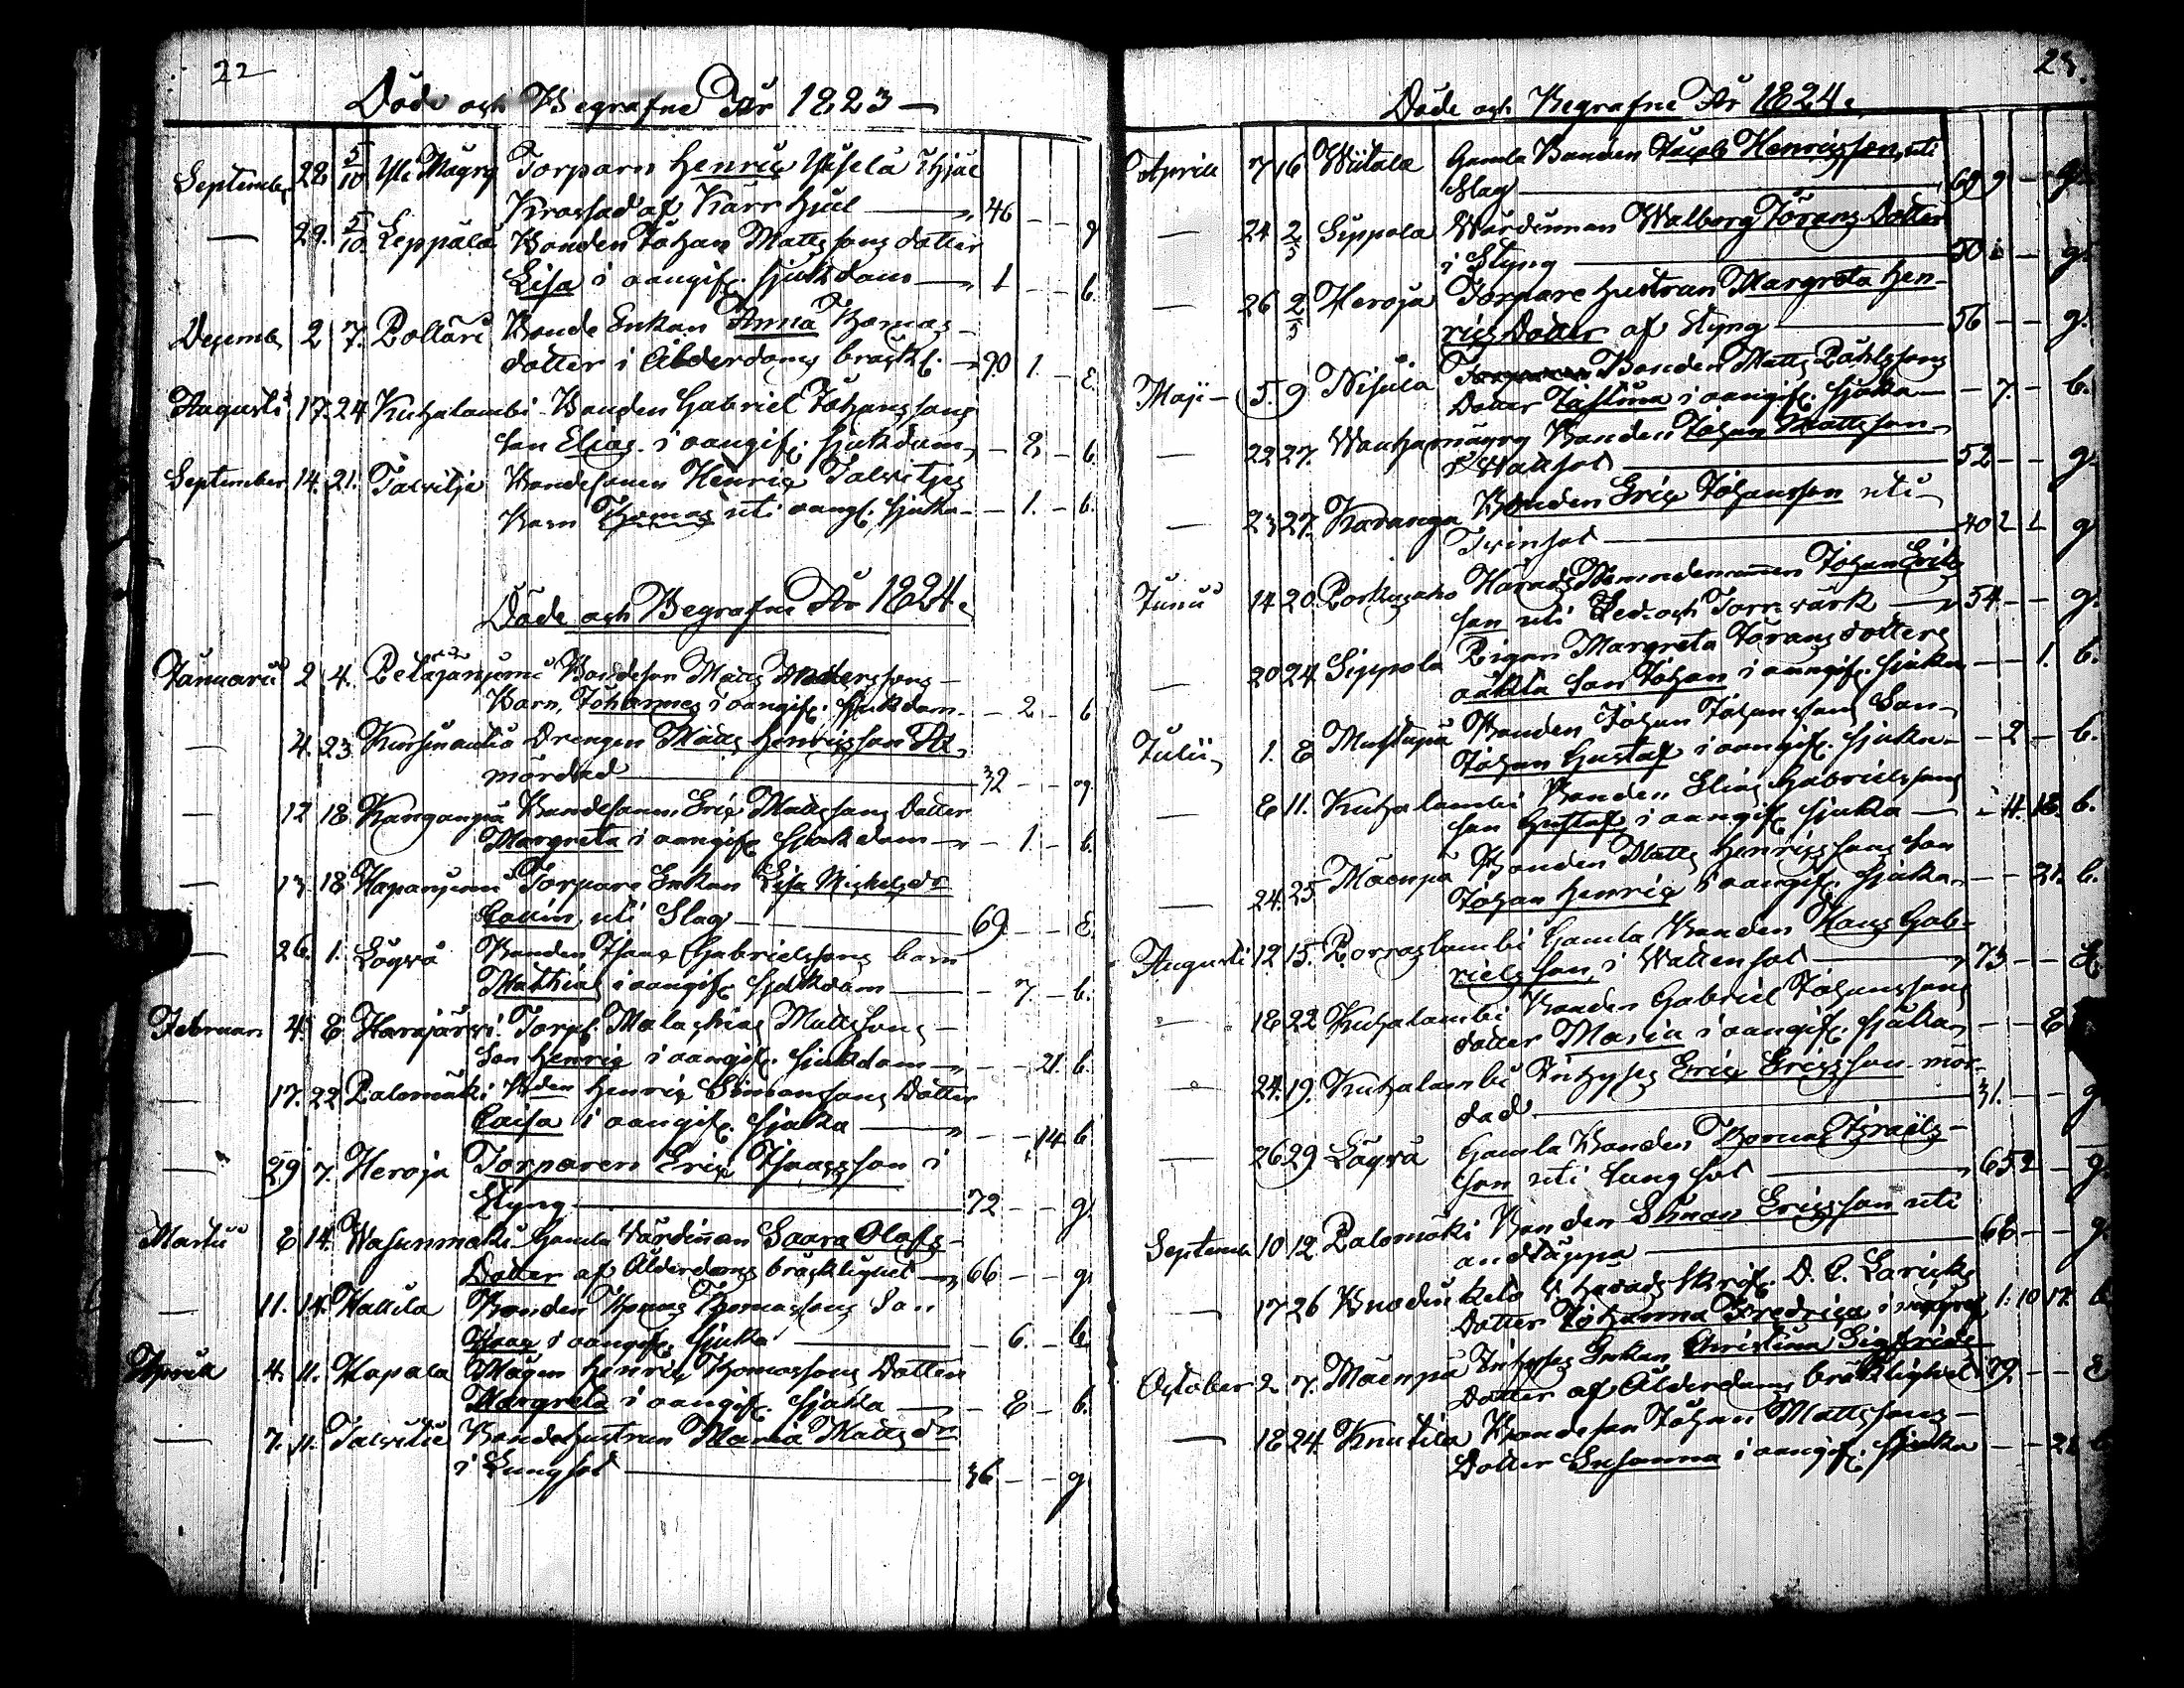 22
Döde och Begrafne År 1823
Septemb. 28 5/10 Yli Mäyry Torparn Henric Ihjäl
Krossad af Kärr hjul 46 - - g
— 29. 5/10 Leppälä Bonden Johan Mattssons dotter
Lisa i oangif. sjukdom 1 - - b.
Decemb. 2 7. Pollari Bonde Enkan Anna Thomas
dotter i Ålderdoms bräckl. 90 1. - E.
Augusti 17. 24 Kuhalambi Bonden Gabriel Johanssons
son Elias i oangif. sjukdom - 8 - b.
September 14. 21. Talvitje Bondesonen Henric Talvitjes
Barn Thomas uti oangf. sjukd. - 1. - b.
Döde och Begrafne År 1824.
Januarii 2 4. Bondeson Matts Anderssons
Barn, Johannes i oangif. sjukdom - 2 - b
— 4. 23 Drengen Matts Henricsson
mördad 32 - - g.
— 12 18 Kanganpä Bondesonen Eric Mattssons Dotter
Margreta i oangif. sjukdom - 1. - b.
— 13 18 Haparjemi Torpare Enkan Lisa Michelsdr
uti Slag 69. - - E.
— 26. 1. Löyvä Bonden Isaac Gabrielssons barn
Mathias i oangif. sjukdom - 7. - b.
Februari 4. 8 Harajärvi Torp. Malachias Mattssons
Son Henric i oangif. sjukdom - - 21. b.
— 17. 22 Palomäki Bden Henric Simonssons Dotter
Caisa i oangif. sjukd. - - 14 b.
— 29 7. Heroja Torparen Eric Isaacsson i
Styng 72 - - g.
Martii 8 14. Wasunmäki Gamla Värdinnan Saara Olofs
Dotter af Ålderdoms bräcklighet 66 - - g.
— 11. 14. Hallila Bonden Thomas Thomassons Son
Isaac i oangif. sjukd. - 6. - b.
Aprill 4. 11. Hapala Mågen Henric Thomassons Dotter
Margreta i oangif. sjukd. - 8 - b.
— 7. 11. Talvitie Bondehustrun Maria Mattsdr
i Lungsot 36 - - g
23.
Döde och Begrafne År 1824.
Aprill 7 16 Wiitala Gamla Bonden Jacob Henricsson, uti
Slag 69 9 - g.
— 24 2/5 Sippola Wärdinnan Walborg Jörans Dotter
i Styng 50 - g.
— 26 2/5 Heroja Torpare hustrun Margreta Hen-
rics Dotter af Styng 56 - - g.
Maji 5. 9 Nisula Bonden Matts Påhlssons
Dotter Justina i oangif. sjukd. - 7. - b.
— 22 27. Bonden Johan Mattsson
i Wattusot 52 - - g.
— 23 27. Karanga Bonden Eric Johansson uti
Tvinsot 40 2 1 g
Junii 14 20. Härads Nämndemannen Johan Erics
son uti Led och Torrvärk 54 - - g.
— 20 24 Sippola Pigan Margreta Jöransdotters
oäkta Son Johan i oangif. sjukd. - - 1. b.
Julii 1. 8 Mustapä Bonden Johan Johanssons Son
Johan Gustaf i oangif. sjukd. - 2 - b.
— 8 11. Kuhalambi Bonden Elias Gabrielssons
son Gustaf i oangif. sjukd. - 4. 18. b.
— 24. 25 Mäenpä Bonden Matts Henricssons son
Johan Henric i oangif. sjukd. - - 21. b.
Augusti 12 15. Porraslambi Gamla Bonden Hans Gab-
rielsson, i Wattensot 73 - -
— 18 22 Kuhalambi Bonden Gabriel Johanssons
dotter Maria i oangif. sjukd. - - 8
— 24. 19. Kuhalambi Inhyses Eric Ericsson mör-
dad 31. - - g
— 26 29 Löyvä Gamla Bonden Thomas Israels-
son uti Lungsot 65 2 - g.
Septemb. 10 12 Palomäki Bonden Simon Ericsson uti
andtäppa 66 - - g.
— 17 26 Härads Skrif. D. C.
Dotter Johanna Fredrica i 1. 10 17. b
October 2 7. Mäenpä Inhyses Enkan Christina Sigfrids
Dotter af Ålderdoms bräcklighet 79. - - E
— 18 24 Knutila Bondeson Johan Mattssons
Dotter Susanna i oangif. sjukd. - - 21 b